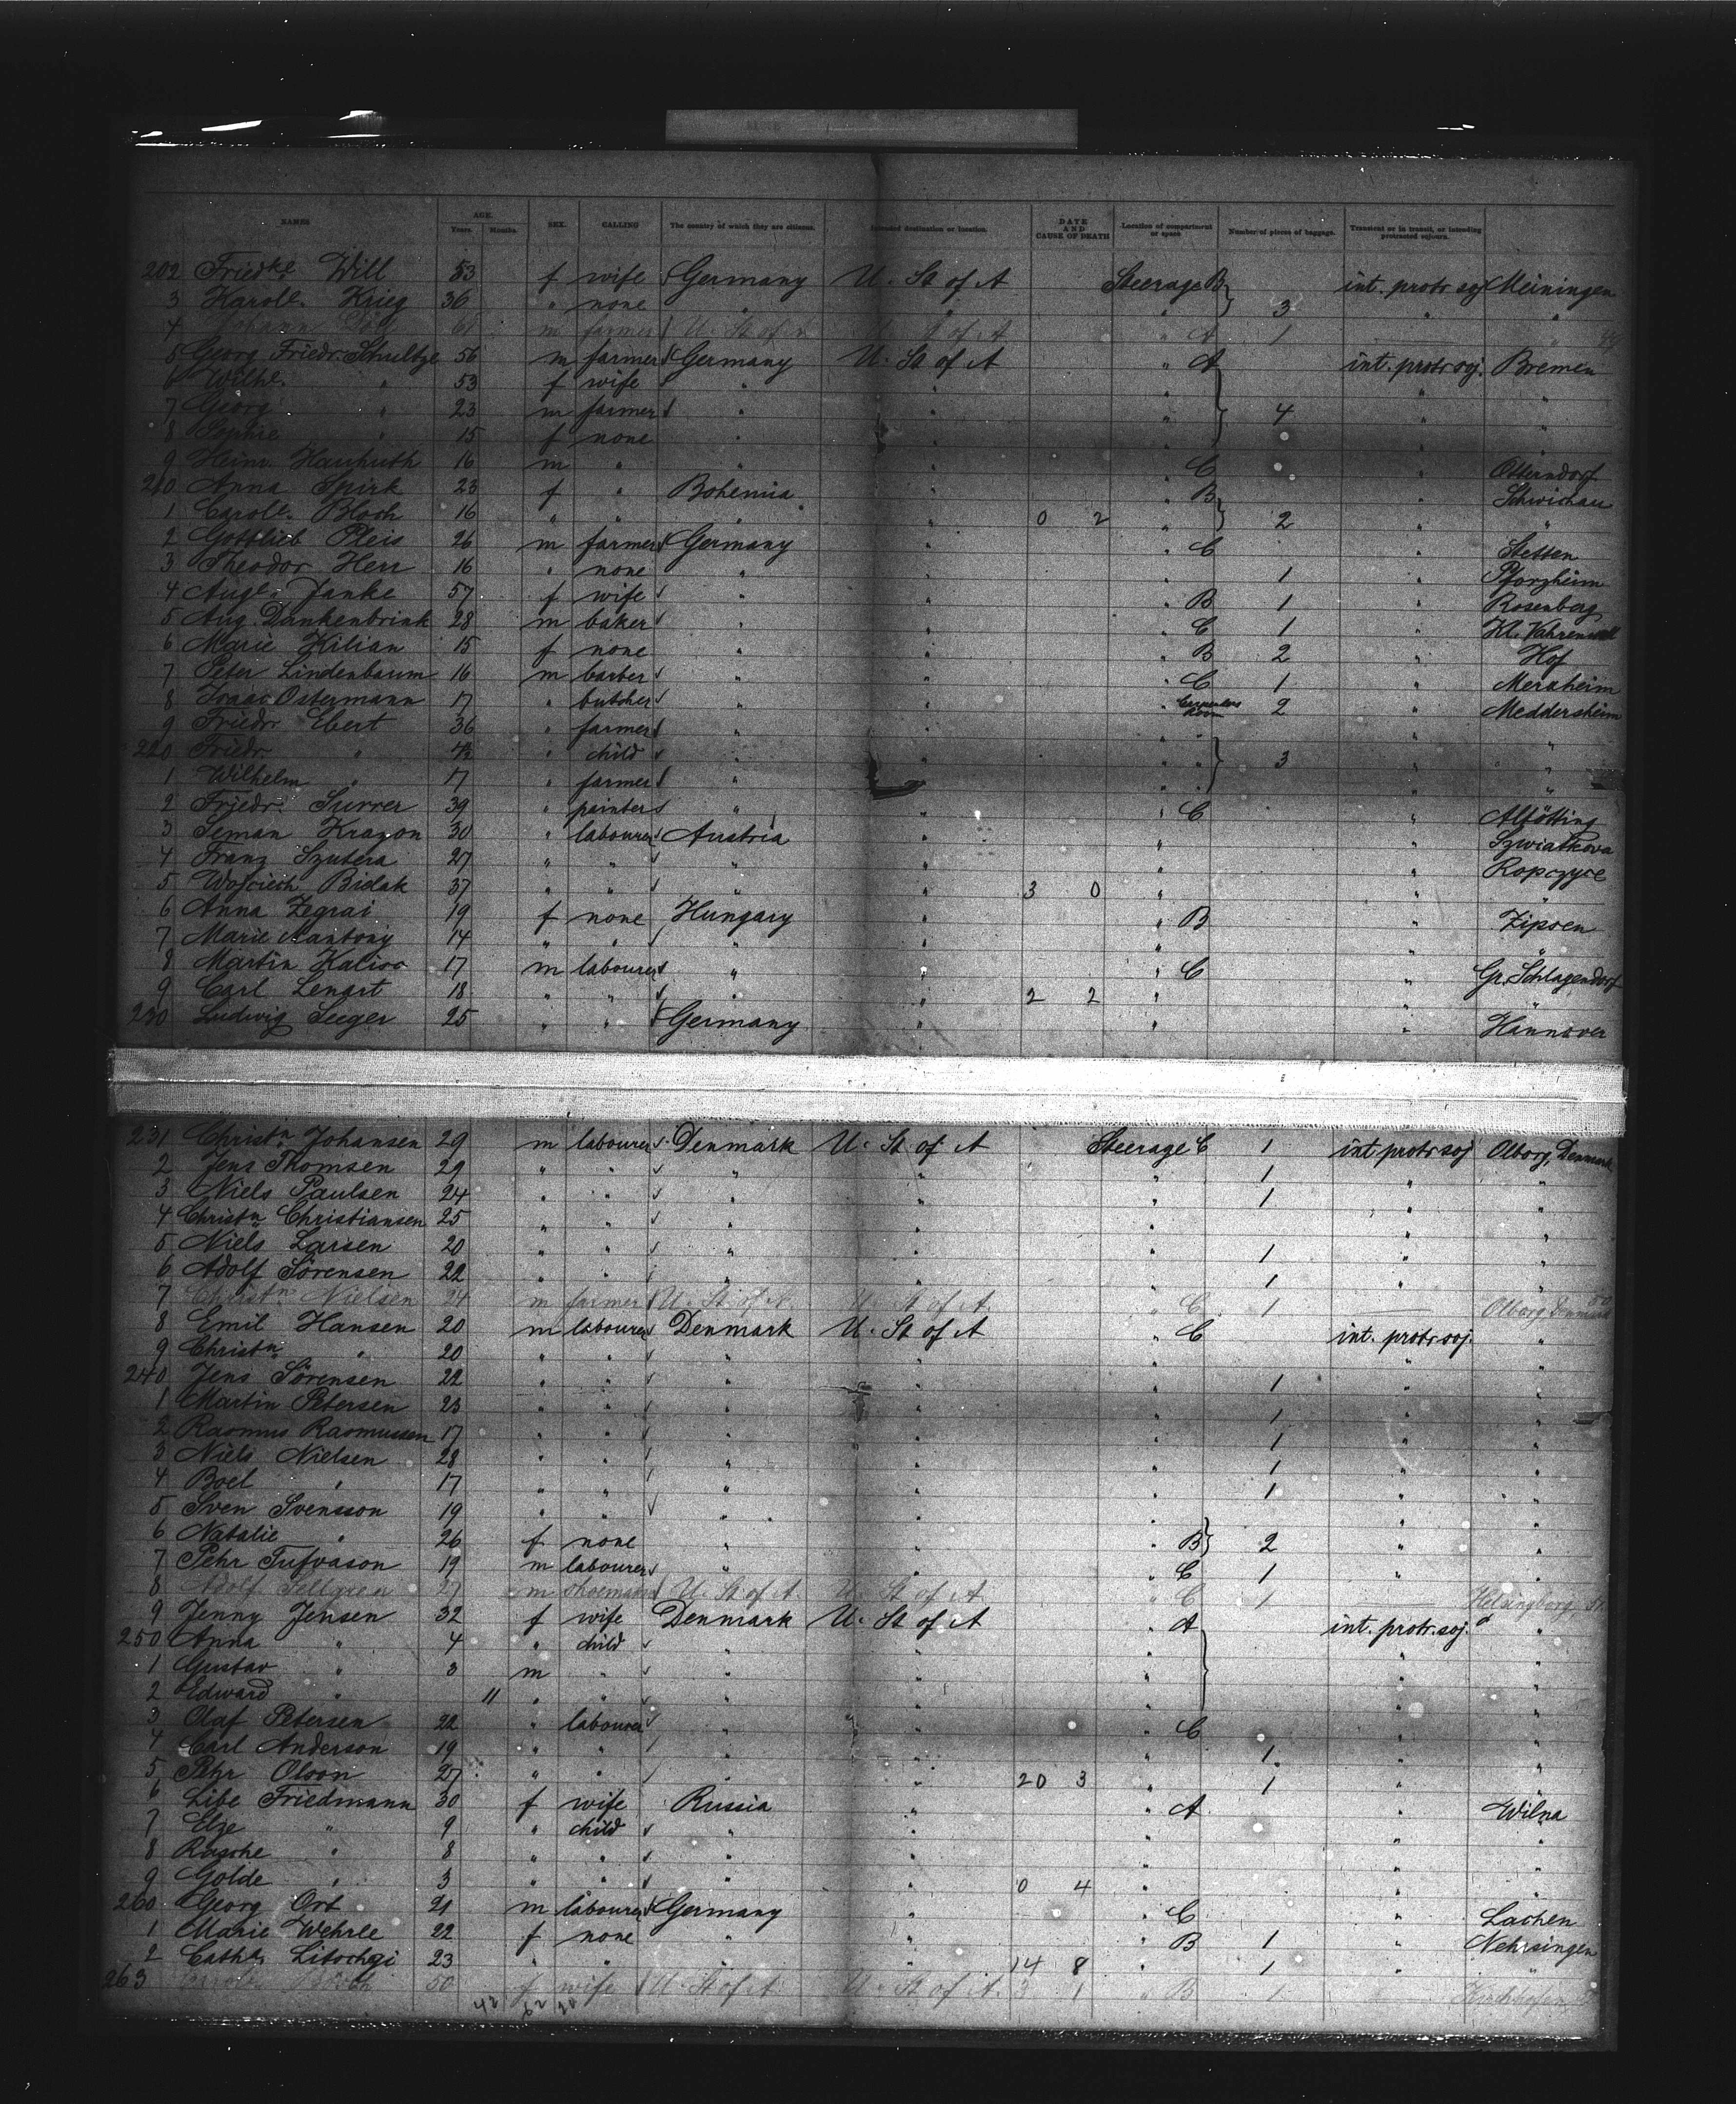 NAMES AGE. Years. Months. SEX. CALLING The country of which they are citizens. Intended destination or location. DATE AND CAUSE OF DEATH Location of compartment or space Number of pieces of baggage. Transient or in transit, or intending protracted sojourn.
202 Friedke Will 53 f wife Germany U. St of A Steerage B int. protr soj Meiningen
3 Karole. Krieg 36 " none " " " 3 " "
4 Johann 61 m farmer U. St of A U. St of A " A 1 "
5 Georg Friedr. Schultze 56 m farmer Germany U. St of A " A int. protr soj. Bremen
6 Wilhe. " 53 f wife " " " " "
7 Georg " 23 m farmer " " " 4 " "
8 Sophie " 15 f none " " " " "
9 Heinr. Hauhuth 16 m " " " " C " Otterndorf
210 Anna Spirk 23 f " Bohemia " " B " Schwichau
1 Carole. Bloch 16 " " " " 0 2 " 2 " "
2 Gottlieb Pleis 26 m farmer Germany " " C " Stetten
3 Theodor Herr 16 " none " " " 1 " Pforzheim
4 Auge. Janke 57 f wife " " " B 1 " Rosenberg
5 Aug. Dankenbrink 28 m baker " " " C 1 " Kl. Vahren
6 Marie Kilian 15 f none " " " B 2 " Hof
7 Peter Lindenbaum 16 m barber " " " C 1 " Merxheim
8 Isaac Ostermann 17 " butcher " " " Carpenters Room 2 " Meddersheim
9 Friedr Ebert 36 " farmer " " " " " "
220 Friedr " 4 " child " " " " 3 " "
1 Wilhelm " 17 " farmer " " " " " "
2 Friedr. Surrer 39 " painter " " " C " Altötting
3 Seman Krazon 30 " labourer Austria " " " Szwiatkova
4 Franz Szutera 27 " " " " " " Ropczyce
5 Wojciech Bidak 37 " " " " 3 0 " " "
6 Anna Zegrai 19 f none Hungary " " B " Zipsen
7 Marie Mantony 14 " " " " " " "
8 Martin Kalisc 17 m labourer " " " C " Gr. Schlagendorf
9 Carl Lenart 18 " " " " 2 2 " " "
230 Ludwig Seeger 25 " " Germany " " " Hannover
231 Christn Johansen 29 m labourer Denmark U. St. of A Steerage C 1 int. protr soj Olborg, Denmark
2 Jens Thomsen 29 " " " " " 1 " "
3 Niels Paulsen 24 " " " " " 1 " "
4 Christn Christiansen 25 " " " " " " "
5 Niels Larsen 20 " " " " " 1 " "
6 Adolf Sörensen 22 " " " " " 1 " "
7 Christn Nielsen 24 m farmer U. St. of A. U. St of A. " C 1 Olborg Denmark
8 Emil Hansen 20 m labourer Denmark U. St of A " C int. protr soj. "
9 Christn " 20 " " " " " " "
240 Jens Sörensen 22 " " " " " 1 " "
1 Martin Petersen 23 " " " " " 1 " "
2 Rasmus Rasmussen 17 " " " " " 1 " "
3 Niels Nielsen 28 " " " " " 1 " "
4 Boel " 17 " " " " " 1 " "
5 Sven Svensson 19 " " " " " " "
6 Natalie " 26 f none " " " B 2 " "
7 Pehr Tufvason 19 m labourer " " " C 1 " "
8 Adolf Fellgren 27 m shoemaker U. St of A U. St of A " C 1 Helsingborg,
9 Jenny Jensen 32 f wife Denmark U. St of A " A int. protr. soj. "
250 Anna " 4 " child " " " " "
1 Gustav " 3 m " " " " " "
2 Edward " 11 " " " " " " "
3 Olaf Petersen 22 " labourer " " " C " "
4 Carl Anderson 19 " " " " " 1 " "
5 Pehr Olson 27 " " " " 20 3 " 1 " "
6 Libe Friedmann 30 f wife Russia " " A " Wilna
7 Elze " 9 " child " " " " "
8 Rasche " 8 " " " " " " "
9 Golde " 3 " " " " 0 4 " " "
260 Georg Ort 21 m labourer Germany " " C " Lachen
1 Marie Wehrle 22 f none " " " B 1 " Nehrsingen
2 Catha. Litschgi 23 " " " " 14 8 " 1 " "
263 50 f wife U. St of A U. St of A. 3 1 " B 1 Kirchhofen,
42 62 20